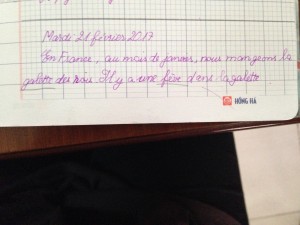 Mardi 21 février 2017
En France, au mois de janvier, nous mangeons la
galette des rois. Il y a une fève dans la galette
HỒNG HÀ